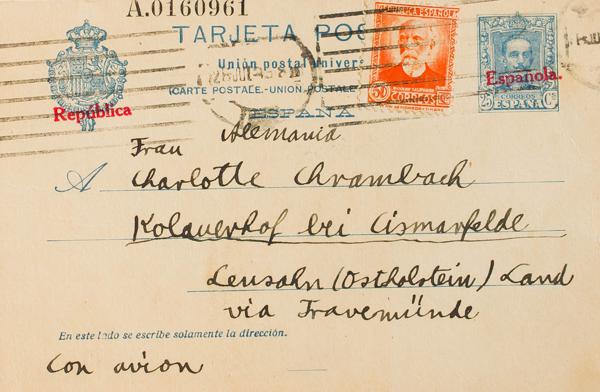 A.0160961
TARJETA POS
Unión postal univers
(CARTE POSTALE.-UNION POSTALE
ESPAÑA
República
REPUBLICA ESPAÑOLA
50
CORREOS
Española.
CORREOS
25 ESPAÑA Cs
Alemania
Frau
A Charlotte Chrambach
Kolauerhof bei Cismarfelde
Lensahn (Ostholstein) Land
via Travemünde
En este lado se escribe solamente la dirección.
Con avion